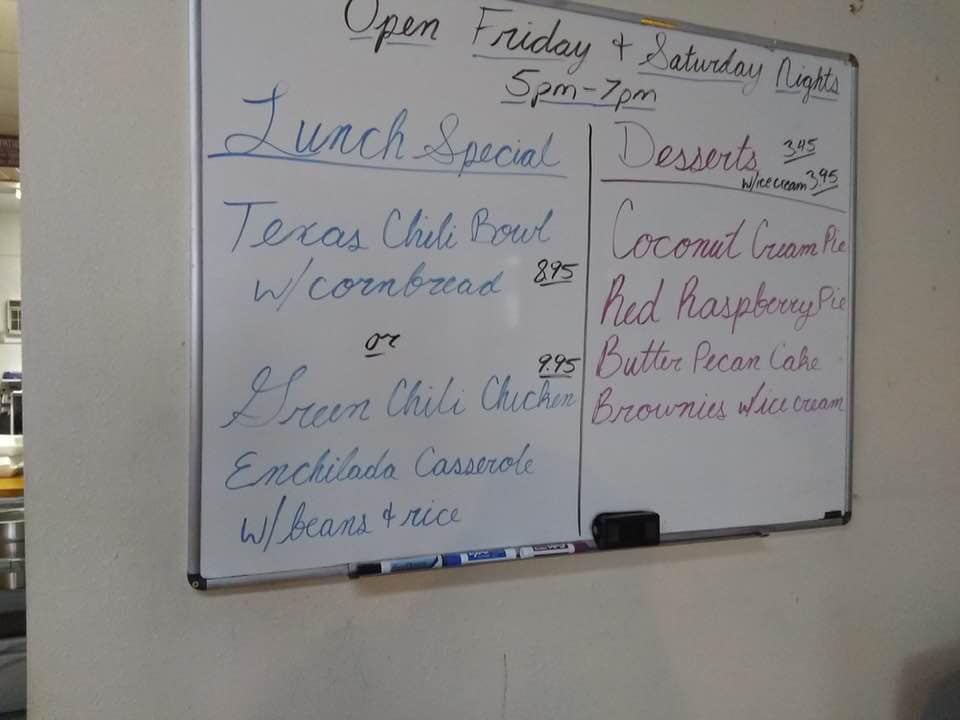 Open Friday + Saturday Nights
5pm-7pm
Lunch Special
Texas Chili Bowl
w/cornbread 8.95
or
9.95
Green Chili Chicken
Enchilada Casserole
w/beans & rice
Desserts 3.45
w/ice cream 3.95
Coconut Cream Pie
Red Raspberry Pie
Butter Pecan Cake
Brownies w/ice cream